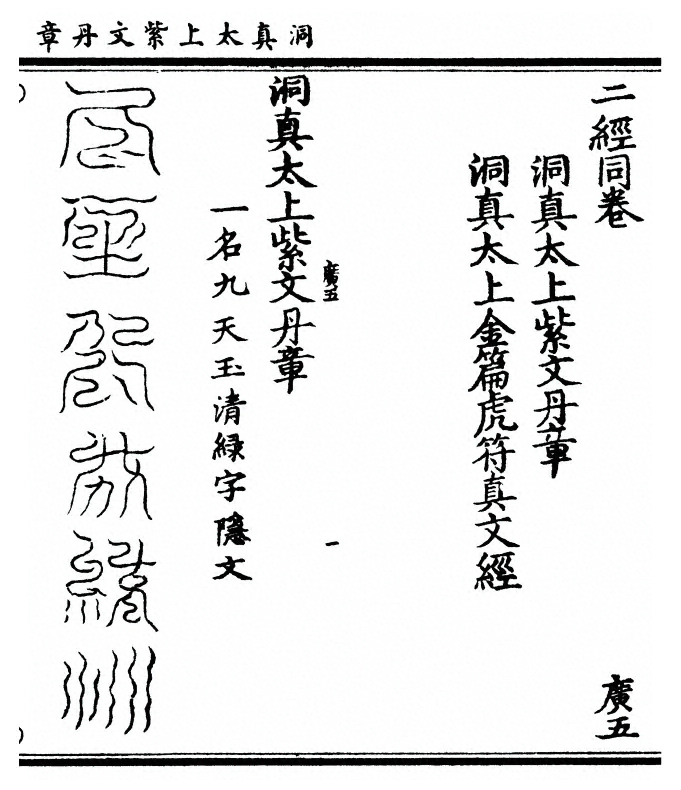 洞真太上紫文丹章
二經同卷
廣五
洞真太上紫文丹章
洞真太上金篇虎符真文經
廣五
一
洞真太上紫文丹章
一名九天玉清緑字隱文